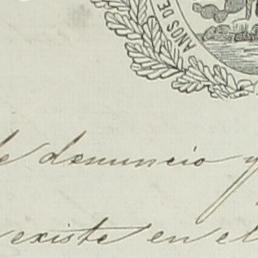 AÑOS DE
de denuncio y
existe en el